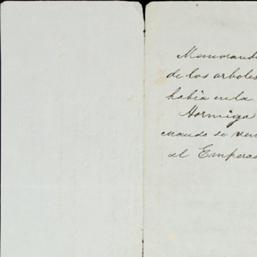 Memorand
de los arboles
habia en la
Hormiga
cuando se ven
al Empera